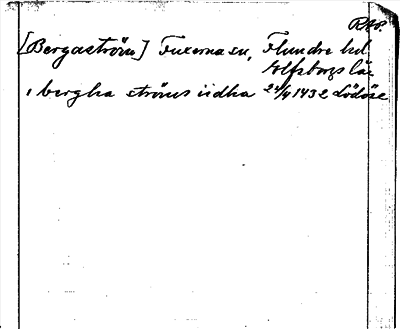 RAP.
[Bergaström] Fuxerna sn, Flundre hd.
Elfsborgs län
i bergha ströms iidha 24/4 1432 Lödöse